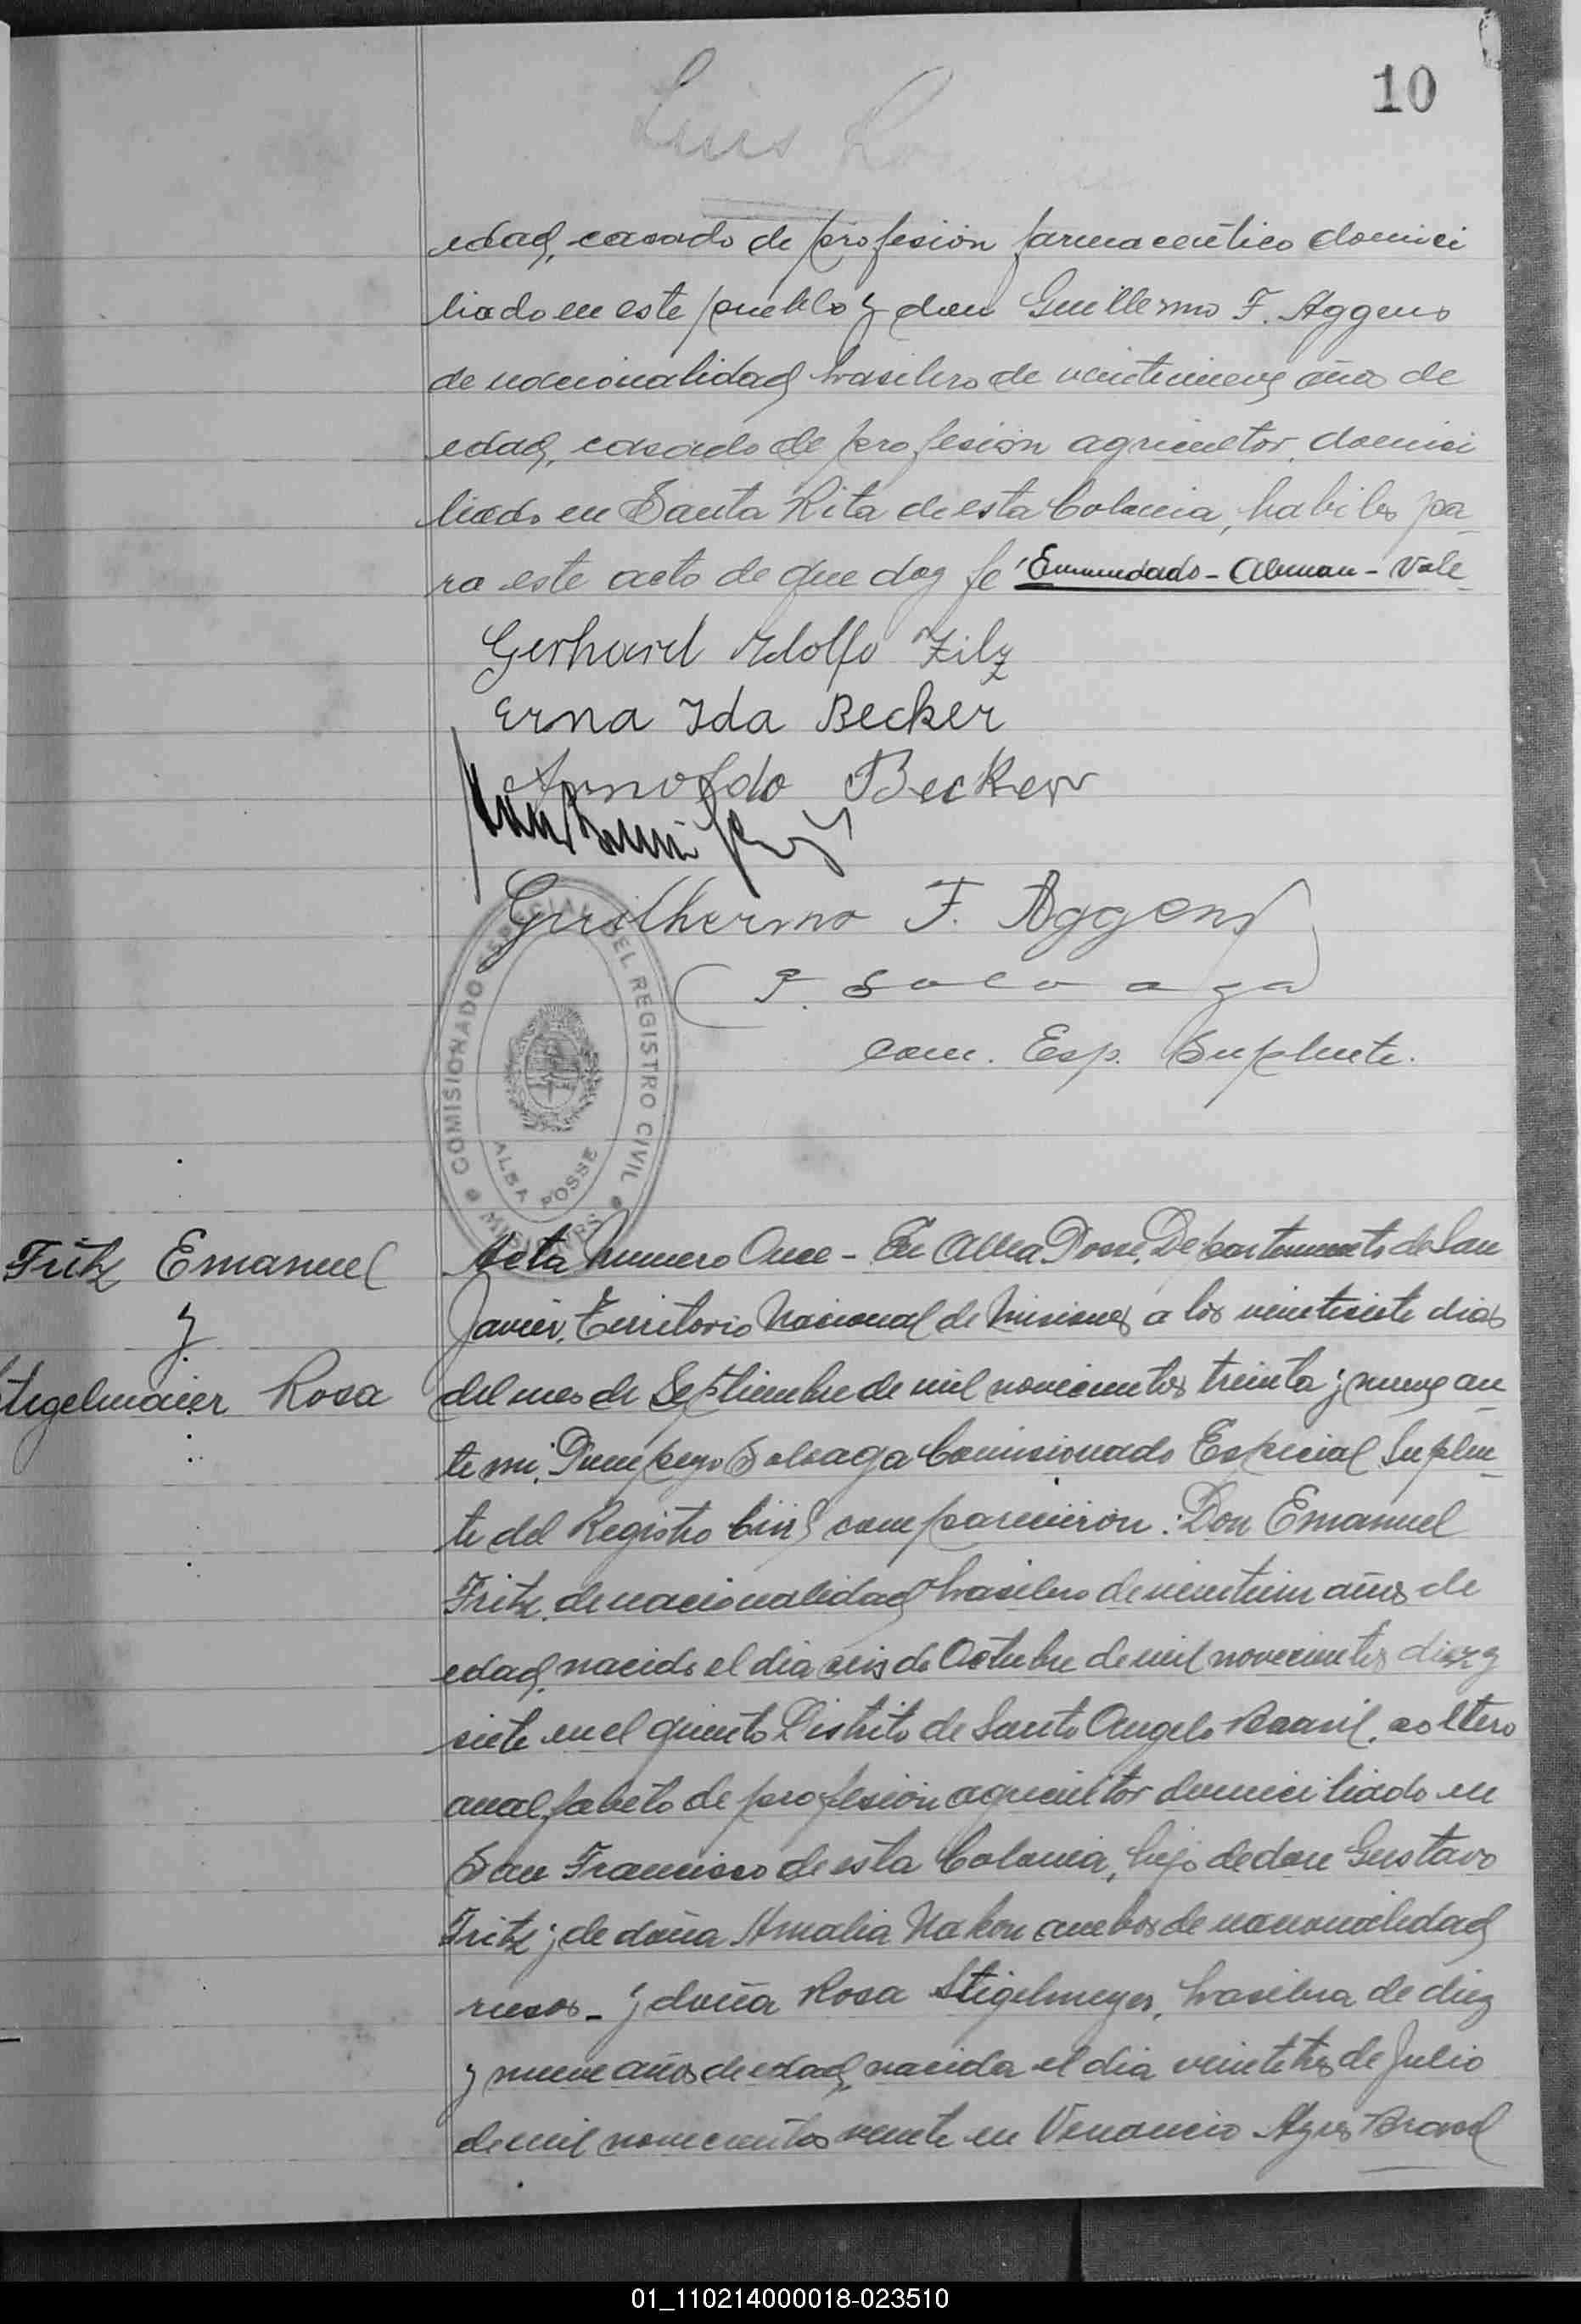 10
Luis
edad, casado de profesión farmaceútico domici
liado en este pueblo y don Guillermo F. Aggens
de nacionalidad brasilero de veintinueve años de
edad, casado de profesión agricultor, domici
liado en Santa Rita de esta Colonia, habiles pa-
ra este acto de que doy fe "Enmendado - Aleman - Vale
Gerhard Adolfo Zilz
Erna Ida Becker
Arnoldo Becker
Guilhermo F. Aggens
P. Soloaga
Com. Esp. Suplente.
COMISIONADO ESPECIAL DEL REGISTRO CIVIL
ALBA POSSE
MISIONES
Fritz Emanuel
y
Stegelmaier Rosa
Acta Numero Once - En Alba Posse, Departamento de San
Javier, Territorio Nacional de Misiones a los veintisiete dias
del mes de Septiembre de mil novecientos treinta y nueve an-
te mi, Pompeyo Soloaga Comisionado Especial Suplen-
te del Registro Civil comparecieron: Don Emanuel
Fritz, de nacionalidad brasilero de veintiun años de
edad, nacido el dia seis de Octubre de mil novecientos diez y
siete en el quinto Distrito de Santo Angelo Brasil, soltero
analfabeto de profesión agricultor domiciliado en
San Francisco de esta Colonia, hijo de don Gustavo
Fritz y de doña Amalia Nakon ambos de nacionalidad
rusos - y doña Rosa Stigelmeyer, brasilera de diez
y nueve años de edad, nacida el dia veintitres de Julio
de mil novecientos veinte en Venancio Ayres Brasil
01_110214000018-023510